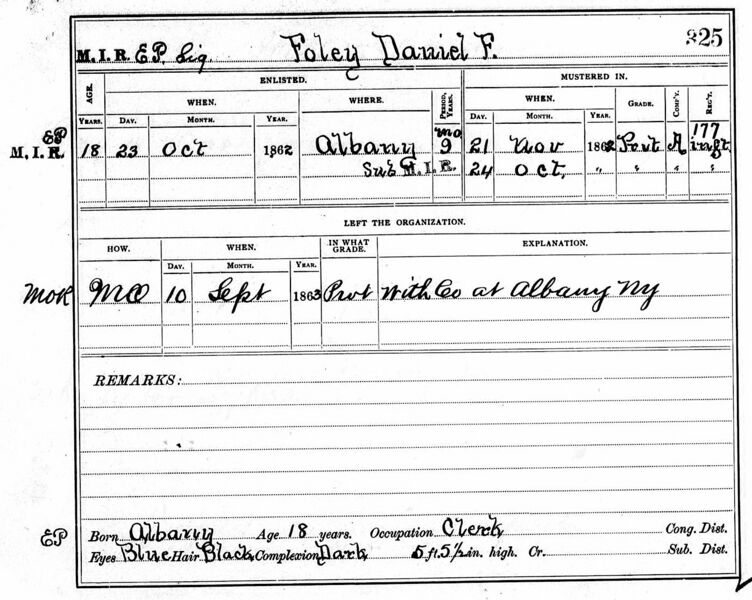 M. I. R. E.P. Sig. Foley Daniel F. 325
AGE. ENLISTED. MUSTERED IN.
WHEN. WHERE. PERIOD, YEARS. WHEN. GRADE. COMP'Y. REG'T.
YEARS. DAY. MONTH. YEAR. DAY. MONTH. YEAR.
EP mo 177
M. I. R. 18 23 Oct 1862 Albany 9 21 Nov 1862 Pvt A inft.
Sub M. I. R. 24 Oct. " " " "
LEFT THE ORGANIZATION.
HOW. WHEN. IN WHAT GRADE. EXPLANATION.
DAY. MONTH. YEAR.
MOR MO 10 Sept 1863 Pvt With Co at Albany NY
REMARKS:
EP Born Albany Age 18 years. Occupation Clerk Cong. Dist.
Eyes Blue Hair Black Complexion Dark 5 ft. 5 1/2 in. high. Cr. Sub. Dist.